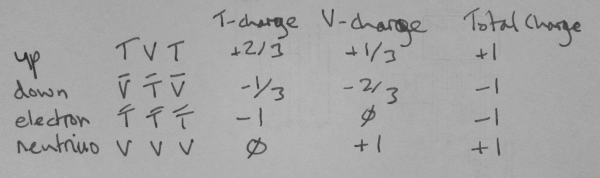 T-charge V-charge Total Charge
up T V T +2/3 +1/3 +1
down V̅ T̅ V̅ -1/3 -2/3 -1
electron T̅ T̅ T̅ -1 ∅ -1
neutrino V V V ∅ +1 +1